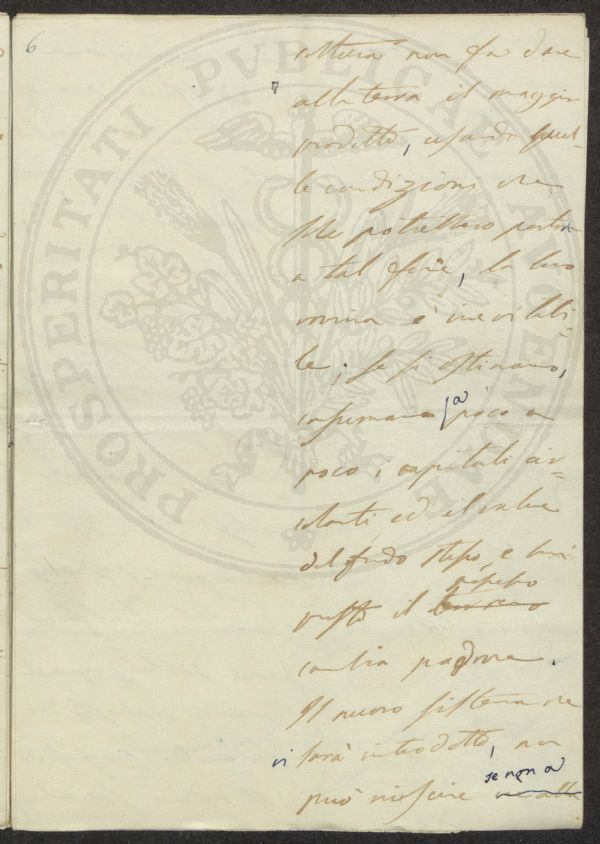 6
coltura non fa dare
alla terra il maggior
prodotto, usando quel-
le condizioni che
sole potrebbero portare
a tal fine, la loro
rovina è inevitabi-
le; se si ostinano,
consumano a poco a
poco i capitali cir-
colanti ed il valore
del fondo stesso, e
presto il rispetto
cambia padrone.
Il nuovo sistema che
vi sarà introdotto, non
può riescire se non a
PROSPERITATI PVBLICAE AVGENDAE